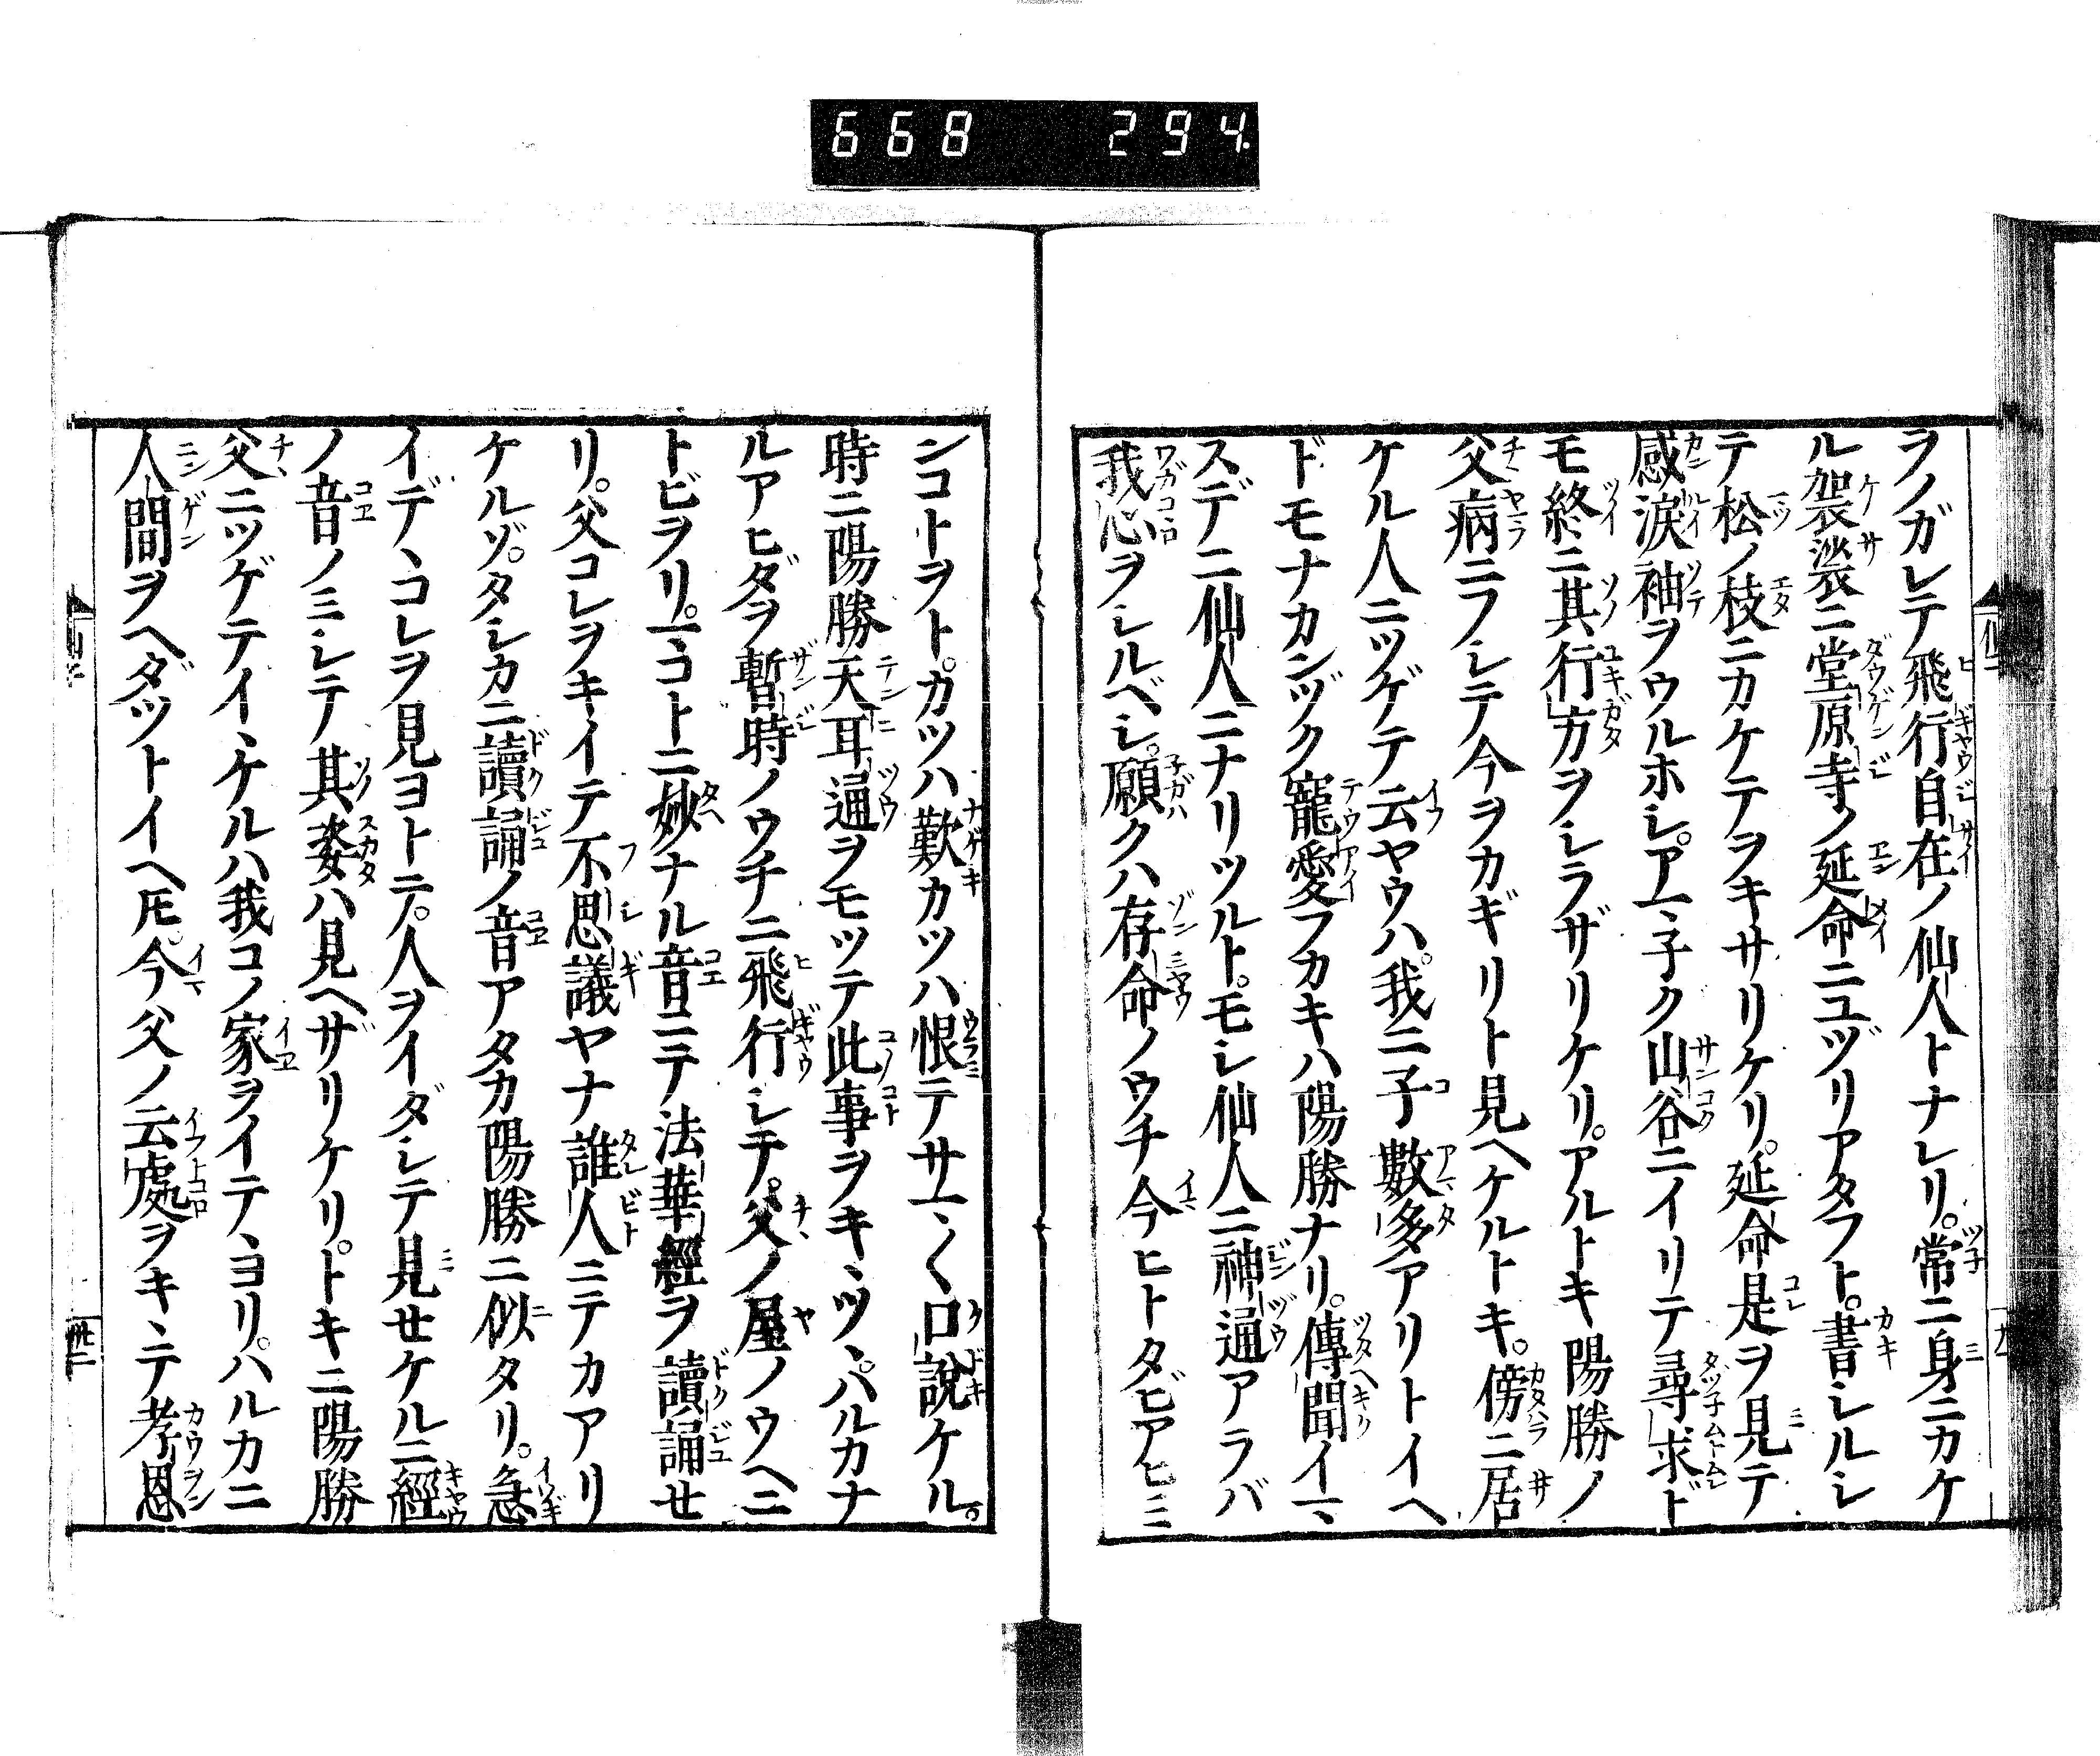 668 294
ヲノガレテ飛行自在ノ仙人トナレリ。常ニ身ニカケ
ル袈裟ニ堂原寺ノ延命ニユヅリアタフト。書シルシ
テ松ノ枝ニカケテヲキサリケリ。延命是ヲ見テ
感涙袖ヲウルホシ。アマ子ク山谷ニイリテ尋求ド
モ終ニ其行方ヲシラザリケリ。アルトキ陽勝ノ
父病ニフシテ今ヲカギリト見ヘケルトキ。傍ニ居
ケル人ニツゲテ云ヤウハ。我ニ子數多アリトイヘ
ドモナカンヅク寵愛フカキハ陽勝ナリ。傳聞イマヽ
スデニ仙人ニナリツルト。モシ仙人ニ神通アラバ
我心ヲシルベシ。願クハ存命ノウチ今ヒトタビアヒミ
ンコトヲト。カツハ歎カツハ恨テサマ〱口説ケル。
時ニ陽勝天耳通ヲモツテ此事ヲキヽツヽ。ハルカナ
ルアヒダヲ暫時ノウチニ飛行シテ。父ノ屋ノウヘニ
トビヲリ。マコトニ妙ナル音ニテ法華經ヲ讀誦せ
リ。父コレヲキイテ不思議ヤナ誰人ニテカアリ
ケルゾ。タシカニ讀誦ノ音アタカ陽勝ニ似タリ。急
イデヽコレヲ見ヨトニ。人ヲイダシテ見せケルニ經
ノ音ノミシテ其姿ハ見ヘザリケリ。トキニ陽勝
父ニツゲテイヽケルハ我コノ家ヲイテヽヨリ。ハルカニ
人間ヲヘダツトイヘ𪜈。今父ノ云處ヲキヽテ孝恩